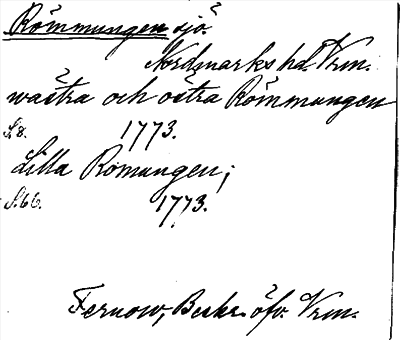 Römmungen sjö.
Nordmarks hd. Vrm.
wästra och östra Römmungen
S.8. 1773.
Lilla Romungen;
S.66. 1773.
Fernow, Beskr. öfv. Vrm.